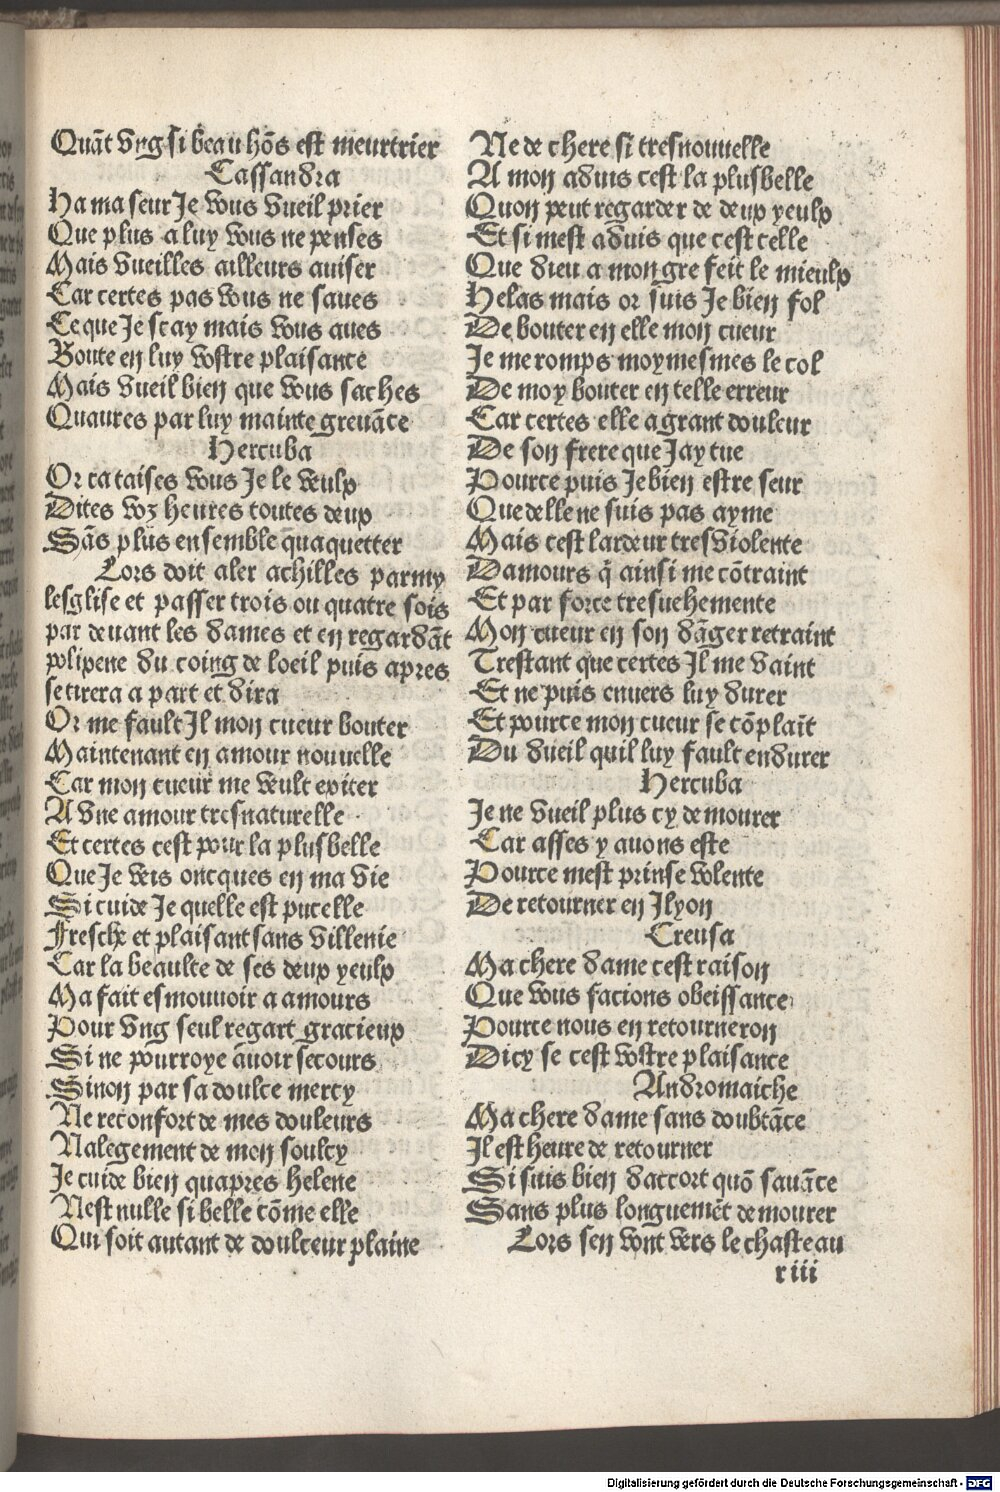 Quāt vng si beau hōs est meurtrier
Cassandra
Ha ma seur Je vous vueil prier
Que plus a luy vous ne penses
Mais vueilles ailleurs auiser
Car certes pas vous ne saues
Ce que Je scay mais vous aues
Boute en luy vostre plaisance
Mais vueil bien que vous saches
Quaures par luy mainte greuāce
Hercuba
Or ca taises vous Je le veulx
Dites voz heures toutes deux
Sās plus ensemble quaquetter
Lors doit aler achilles parmy
lesglise et passer trois ou quatre fois
par deuant les dames et en regardāt
polixene du coing de loeil puis apres
se tirera a part et dira
Or me fault Il mon cueur bouter
Maintenant en amour nouuelle
Car mon cueur me veult exiter
A vne amour tresnaturelle
Et certes cest pour la plusbelle
Que Je veis oncques en ma vie
Si cuide Je quelle est pucelle
Fresche et plaisant sans villenie
Car la beaulte de ses deux yeulx
Ma fait esmouuoir a amours
Pour vng seul regart gracieux
Si ne pourroye auoir secours
Sinon par sa doulce mercy
Ne reconfort de mes douleurs
Nalegement de mon soulcy
Je cuide bien quapres helene
Nest nulle si belle cōme elle
Qui soit autant de doulceur plaine
Ne de chere si tresnouuelle
A mon aduis cest la plusbelle
Quon peut regarder de deux yeulx
Et si mest aduis que cest celle
Que dieu a mon gre feit le mieulx
Helas mais or suis Je bien fol
De bouter en elle mon cueur
Je me romps moymesmes le col
De moy bouter en telle erreur
Car certes elle a grant douleur
De son frere que Jay tue
Pource puis Je bien estre seur
Que delle ne suis pas ayme
Mais cest lardeur tresviolente
Damours q̄ ainsi me cōtraint
Et par force tresuehemente
Mon cueur en son dāger retraint
Trestant que certes Il me vaint
Et ne puis enuers luy durer
Et pource mon cueur se cōplaīt
Du dueil quil luy fault endurer
Hercuba
Je ne vueil plus cy demourer
Car asses y auons este
Pource mest prinse volente
De retourner en Jlyon
Creusa
Ma chere dame cest raison
Que vous facions obeissance
Pource nous en retourneron
Dicy se cest vostre plaisance
Andromaiche
Ma chere dame sans doubtāce
Il est heure de retourner
Si suis bien daccort quō sauāce
Sans plus longuemēt demourer
Lors sen vont vers le chasteau
r iii
Digitalisierung gefördert durch die Deutsche Forschungsgemeinschaft - DFG